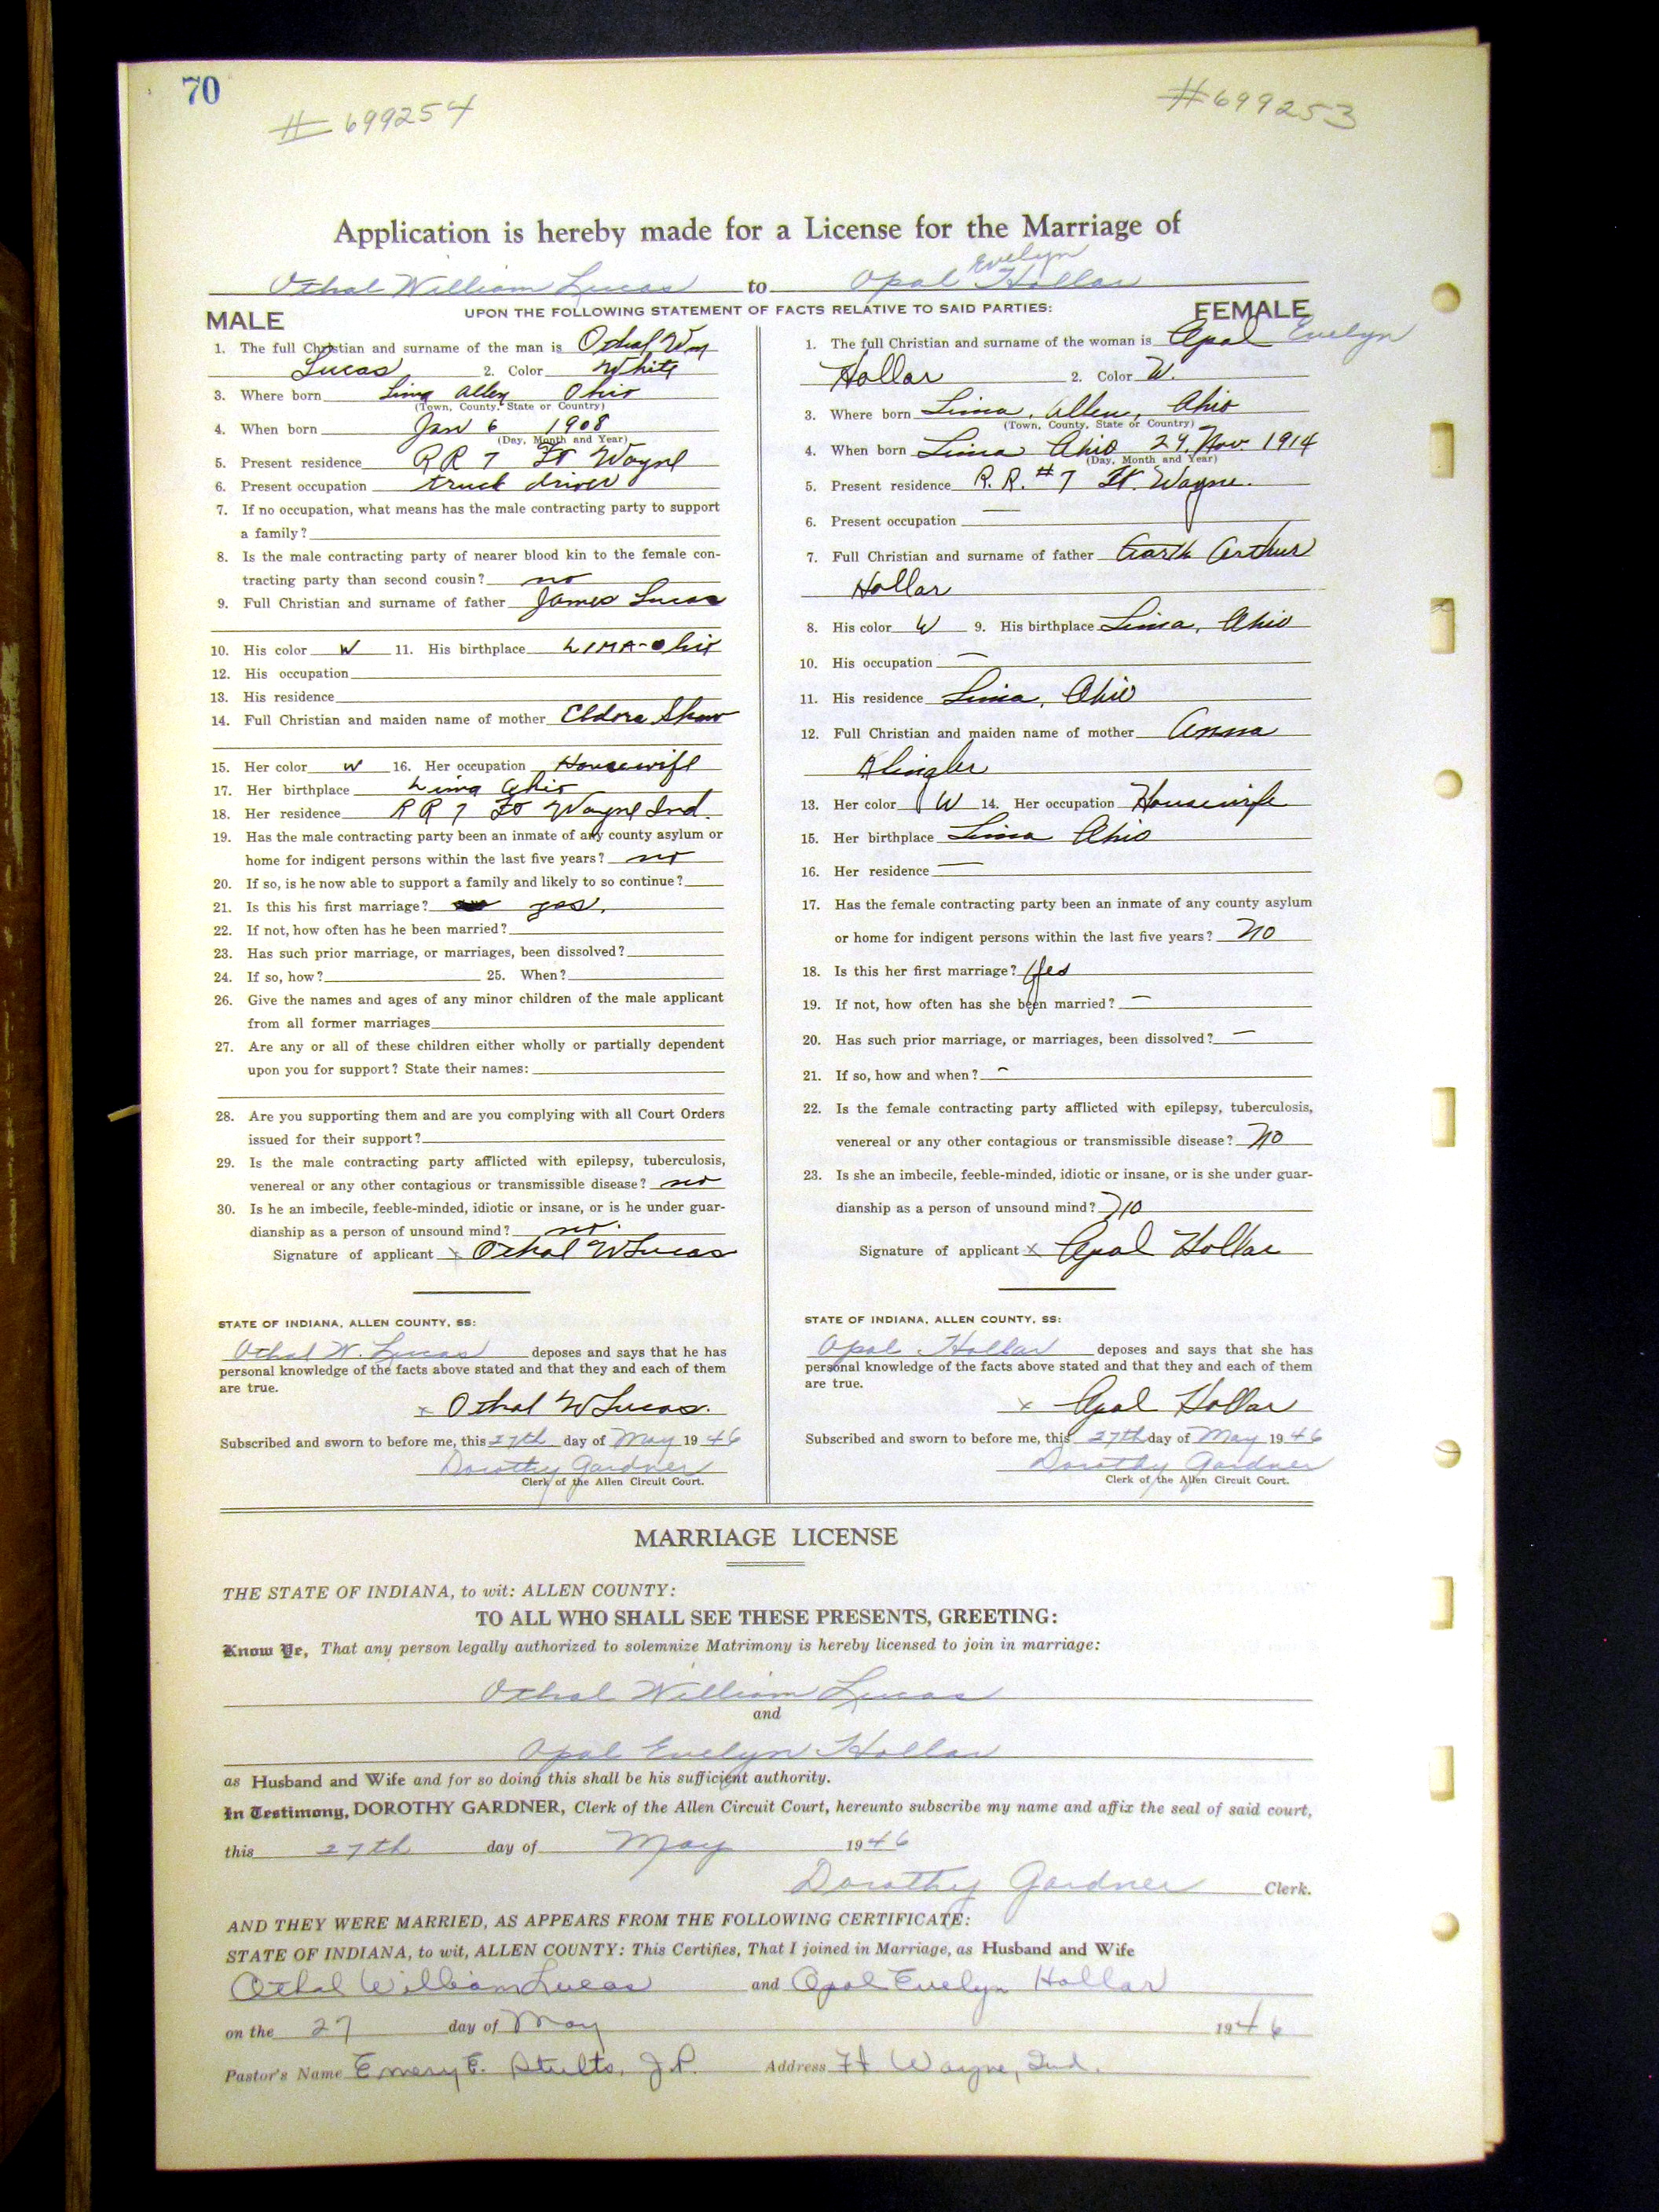 70
# 699254
# 699253
Application is hereby made for a License for the Marriage of
Othal William Lucas to Opal Evelyn Hollar
UPON THE FOLLOWING STATEMENT OF FACTS RELATIVE TO SAID PARTIES:
MALE
1. The full Christian and surname of the man is Othal Wm
Lucas 2. Color White
3. Where born Lima Allen Ohio
(Town, County, State or Country)
4. When born Jan 6 1908
(Day, Month and Year)
5. Present residence RR 7 Ft Wayne
6. Present occupation truck driver
7. If no occupation, what means has the male contracting party to support
a family?
8. Is the male contracting party of nearer blood kin to the female con-
tracting party than second cousin? no
9. Full Christian and surname of father James Lucas
10. His color W 11. His birthplace LIMA-Ohio
12. His occupation
13. His residence
14. Full Christian and maiden name of mother Eldora Shaw
15. Her color W 16. Her occupation Housewife
17. Her birthplace Lima Ohio
18. Her residence RR 7 Ft Wayne Ind.
19. Has the male contracting party been an inmate of any county asylum or
home for indigent persons within the last five years? no
20. If so, is he now able to support a family and likely to so continue?
21. Is this his first marriage? yes.
22. If not, how often has he been married?
23. Has such prior marriage, or marriages, been dissolved?
24. If so, how? 25. When?
26. Give the names and ages of any minor children of the male applicant
from all former marriages
27. Are any or all of these children either wholly or partially dependent
upon you for support? State their names:
28. Are you supporting them and are you complying with all Court Orders
issued for their support?
29. Is the male contracting party afflicted with epilepsy, tuberculosis,
venereal or any other contagious or transmissible disease? no
30. Is he an imbecile, feeble-minded, idiotic or insane, or is he under guar-
dianship as a person of unsound mind? no.
Signature of applicant x Othal W Lucas
STATE OF INDIANA, ALLEN COUNTY, SS:
Othal W. Lucas deposes and says that he has
personal knowledge of the facts above stated and that they and each of them
are true.
x Othal W Lucas.
Subscribed and sworn to before me, this 27th day of May 1946
Dorothy Gardner
Clerk of the Allen Circuit Court.
FEMALE
1. The full Christian and surname of the woman is Opal Evelyn
Hollar 2. Color W.
3. Where born Lima, Allen, Ohio
(Town, County, State or Country)
4. When born Lima Ohio 24, Nov. 1914
(Day, Month and Year)
5. Present residence R. R. #7 Ft. Wayne.
6. Present occupation —
7. Full Christian and surname of father Garth Arthur
Hollar
8. His color W 9. His birthplace Lima, Ohio
10. His occupation —
11. His residence Lima, Ohio
12. Full Christian and maiden name of mother Anna
Klingler
13. Her color W 14. Her occupation Housewife
15. Her birthplace Lima Ohio
16. Her residence —
17. Has the female contracting party been an inmate of any county asylum
or home for indigent persons within the last five years? No
18. Is this her first marriage? Yes
19. If not, how often has she been married? —
20. Has such prior marriage, or marriages, been dissolved? —
21. If so, how and when? -
22. Is the female contracting party afflicted with epilepsy, tuberculosis,
venereal or any other contagious or transmissible disease? No
23. Is she an imbecile, feeble-minded, idiotic or insane, or is she under guar-
dianship as a person of unsound mind? No
Signature of applicant x Opal Hollar
STATE OF INDIANA, ALLEN COUNTY, SS:
Opal Hollar deposes and says that she has
personal knowledge of the facts above stated and that they and each of them
are true.
x Opal Hollar
Subscribed and sworn to before me, this 27th day of May 1946
Dorothy Gardner
Clerk of the Allen Circuit Court.
MARRIAGE LICENSE
THE STATE OF INDIANA, to wit: ALLEN COUNTY:
TO ALL WHO SHALL SEE THESE PRESENTS, GREETING:
Know Ye, That any person legally authorized to solemnize Matrimony is hereby licensed to join in marriage:
Othal William Lucas
and
Opal Evelyn Hollar
as Husband and Wife and for so doing this shall be his sufficient authority.
In Testimony, DOROTHY GARDNER, Clerk of the Allen Circuit Court, hereunto subscribe my name and affix the seal of said court,
this 27th day of May 1946
Dorothy Gardner Clerk.
AND THEY WERE MARRIED, AS APPEARS FROM THE FOLLOWING CERTIFICATE:
STATE OF INDIANA, to wit, ALLEN COUNTY: This Certifies, That I joined in Marriage, as Husband and Wife
Othal William Lucas and Opal Evelyn Hollar
on the 27 day of May 1946
Pastor's Name Emery E. Stults, J.P. Address Ft Wayne, Ind.